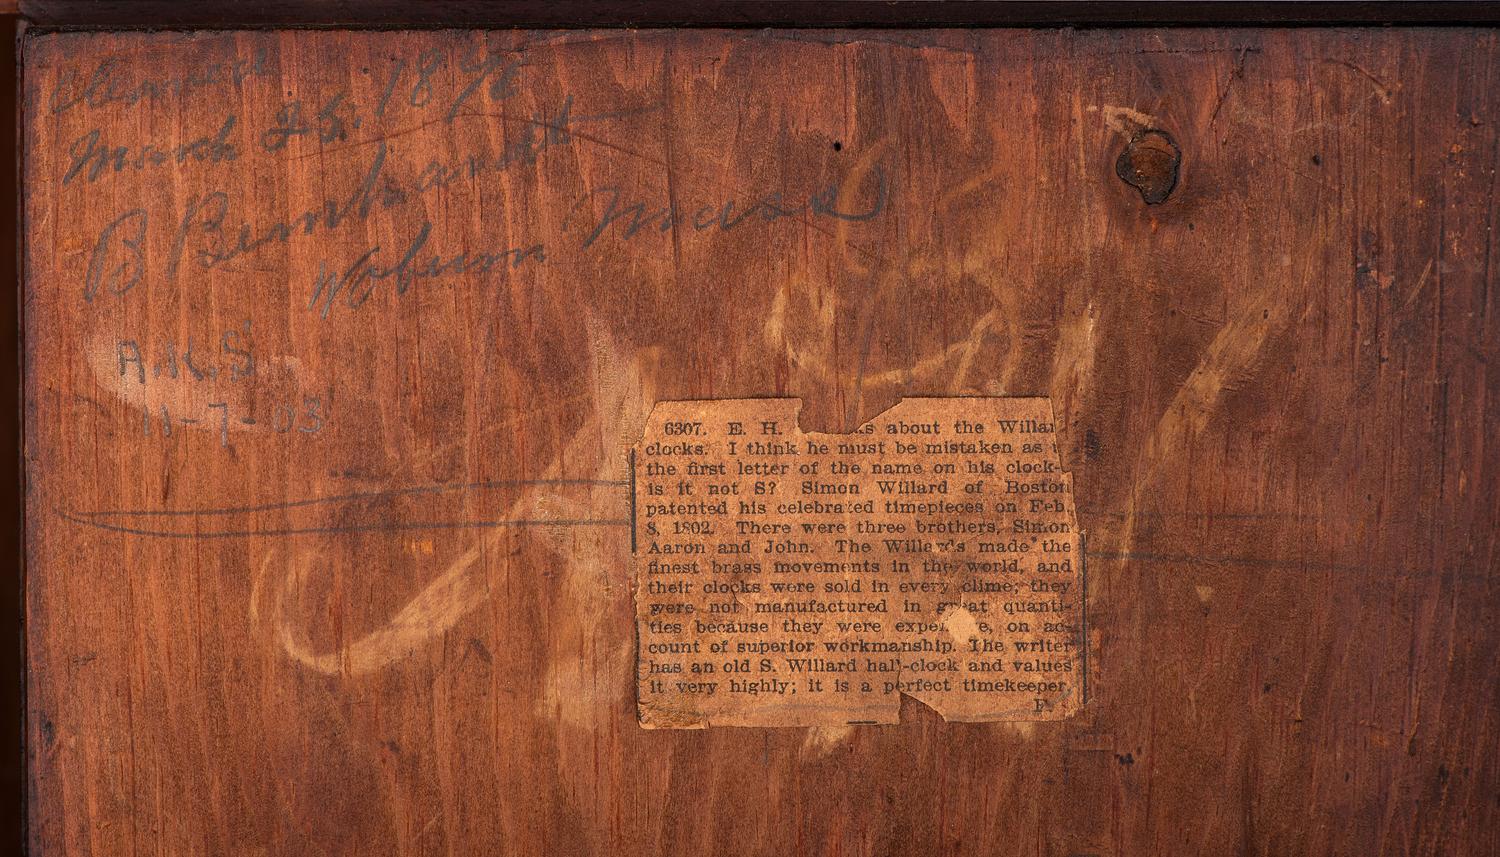 March 25. 1896
B Bernhardt
Woburn Mass
A.K.S.
11-7-03
6307. E. H. about the
clocks. I think he must be mistaken as
the first letter of the name on his clock-
is it not S? Simon Willard of Boston
patented his celebrated timepieces on Feb.
8, 1802. There were three brothers, Simon
Aaron and John. The Willards made the
finest brass movements in the world, and
their clocks were sold in every clime; they
were not manufactured in great quanti-
ties because they were on ac-
count of superior workmanship. The writer
has an old S. Willard hall-clock and values
it very highly; it is a perfect timekeeper.